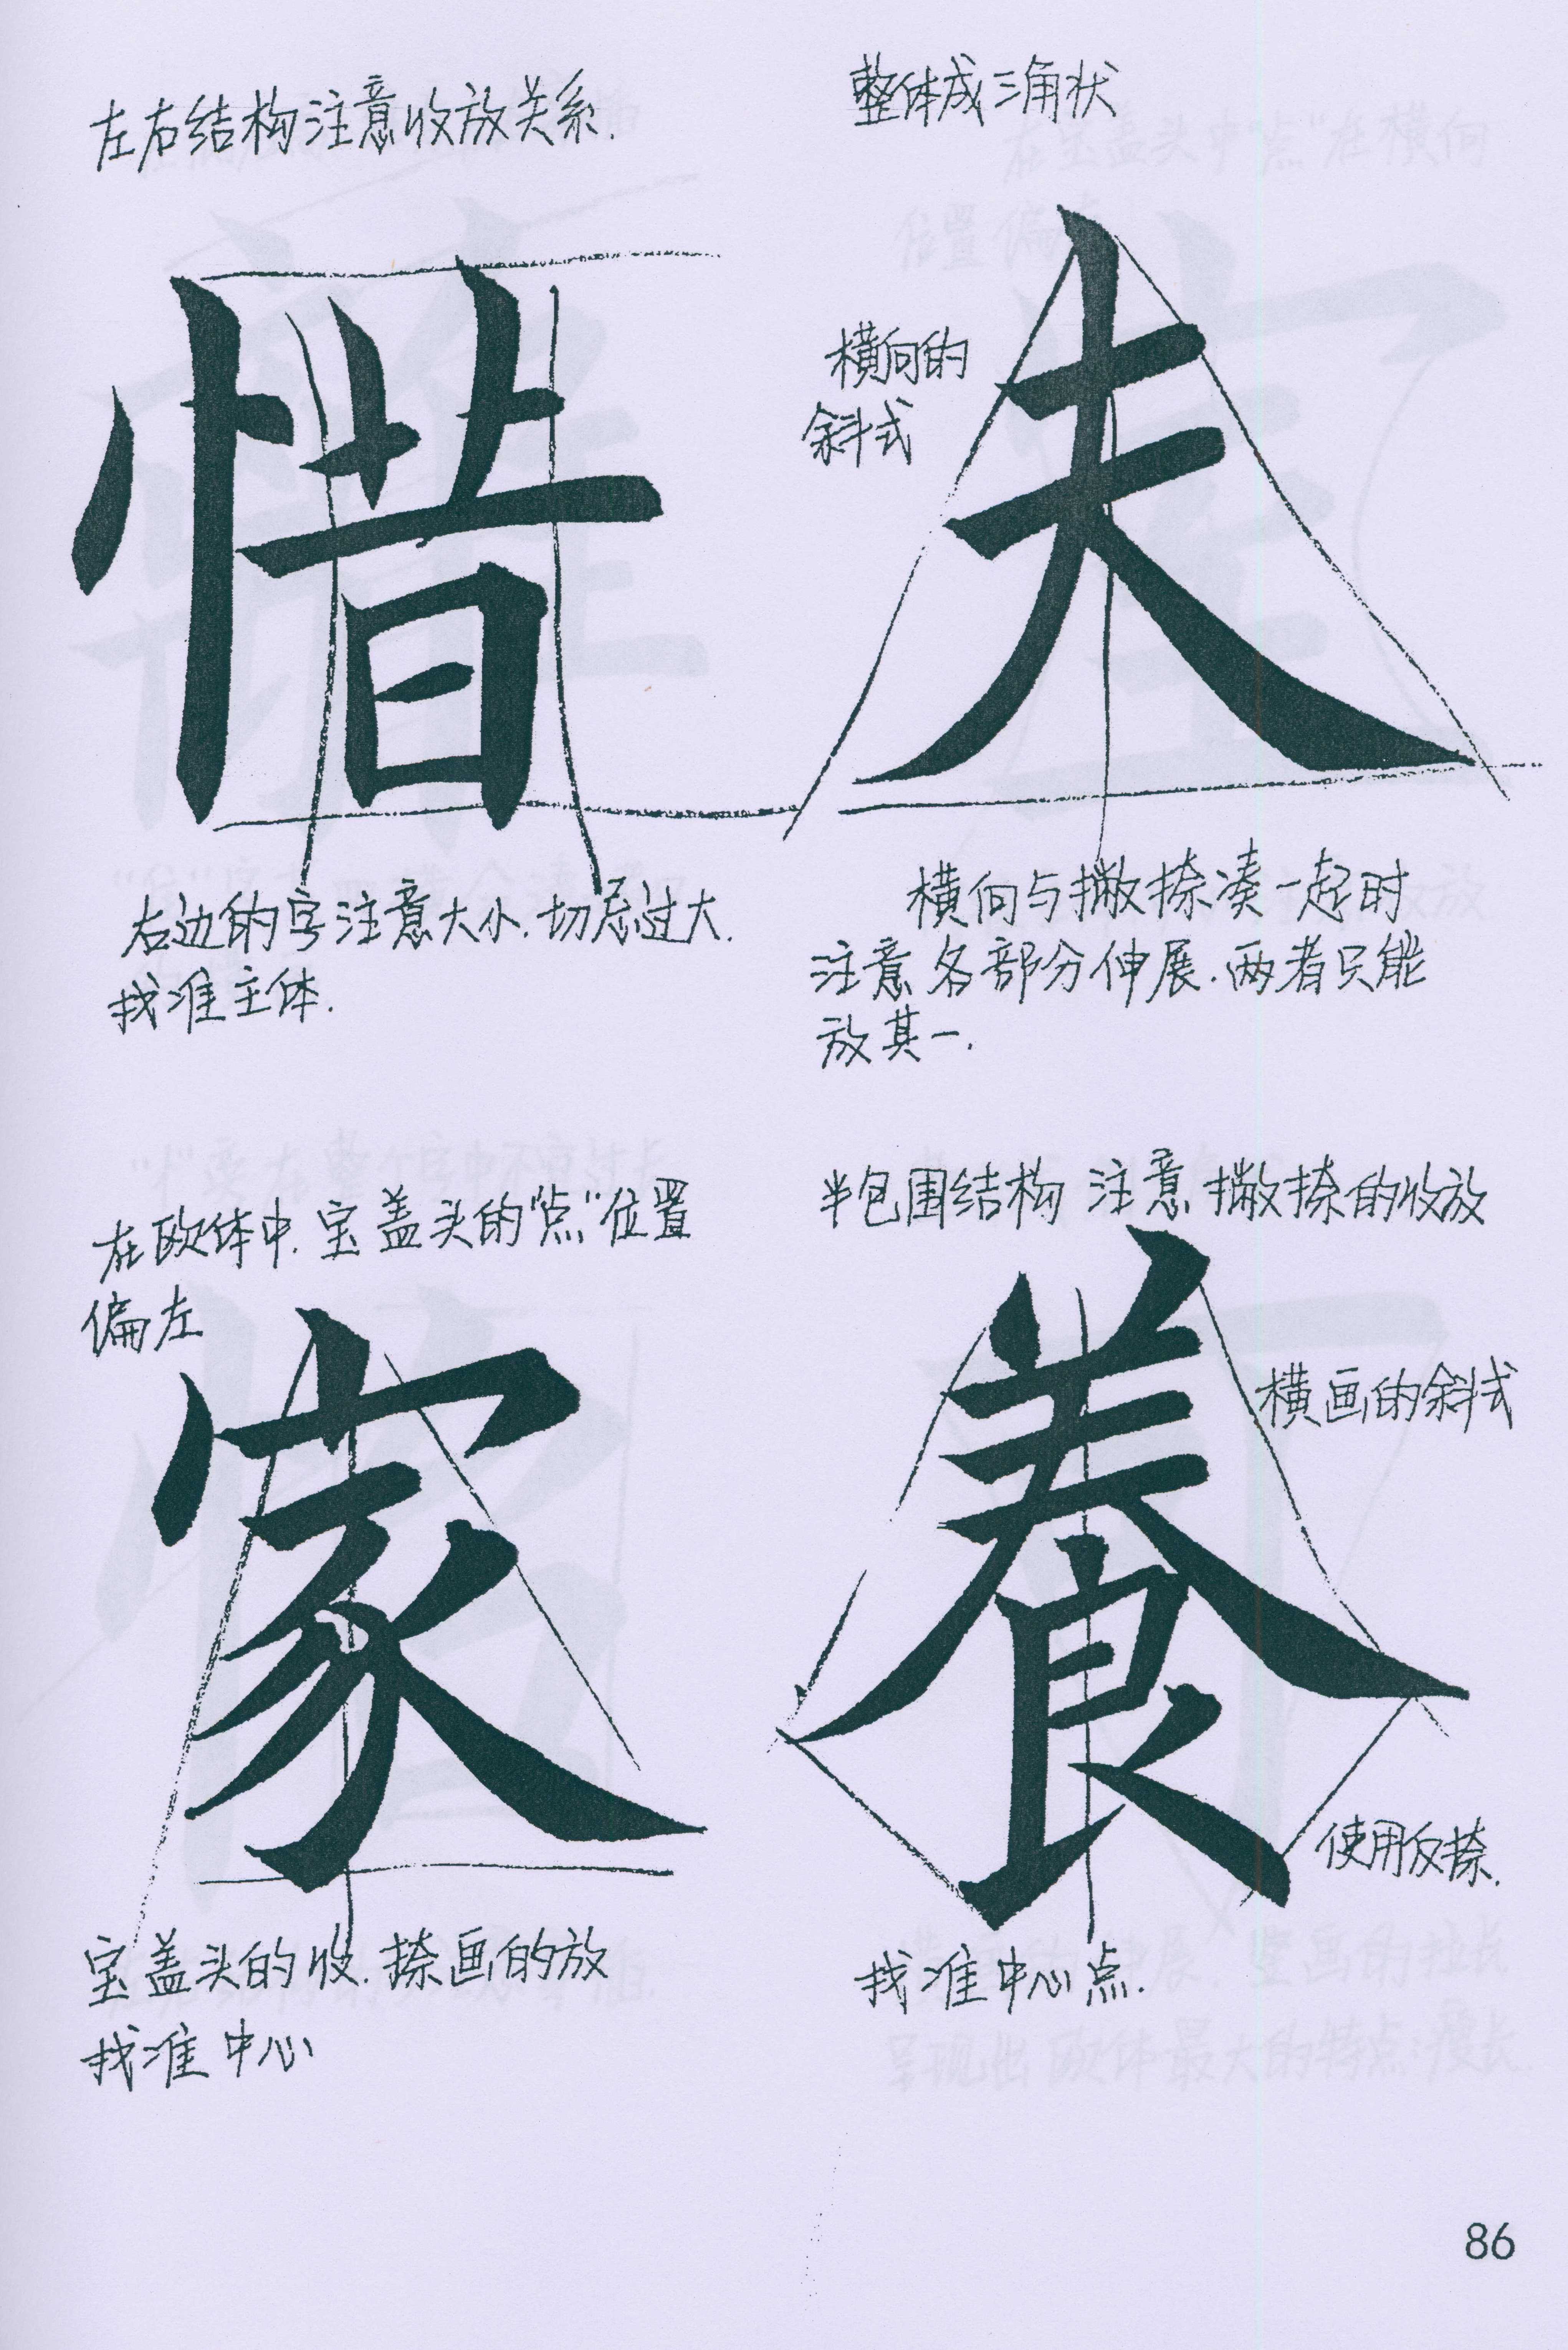 左右结构注意收放关系.
惜
右边的字注意大小.切忌过大.
找准主体.
整体成三角状
横向的
斜式
夫
横向与撇捺凑一起时
注意各部分伸展.两者只能
放其一.
在欧体中.宝盖头的“点”位置
偏左
家
宝盖头的收.捺画的放
找准中心
半包围结构 注意撇捺的收放
養
横画的斜式
使用反捺.
找准中心点.
86